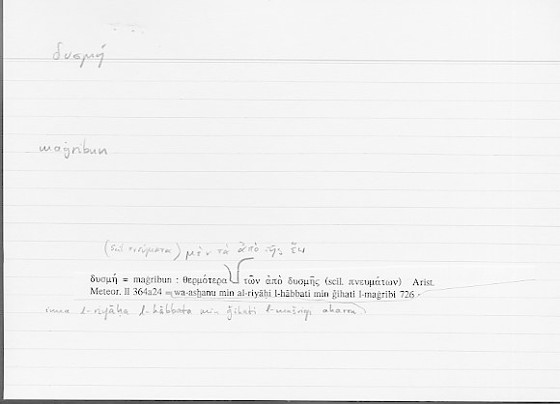 δυσμή
maġribun
(scil. πνεύματα) μὲν τὰ ἀπὸ τῆς ἕω
δυσμή = maġribun : θερμότερα τῶν ἀπὸ δυσμῆς (scil. πνευμάτων) Arist.
Meteor. II 364a24 = wa-asḫanu min al-riyāḥi l-hābbati min ǧihati l-maġribi 726
inna l-riyāḥa l-hābbata min ǧihati l-mašriqi aḥarra